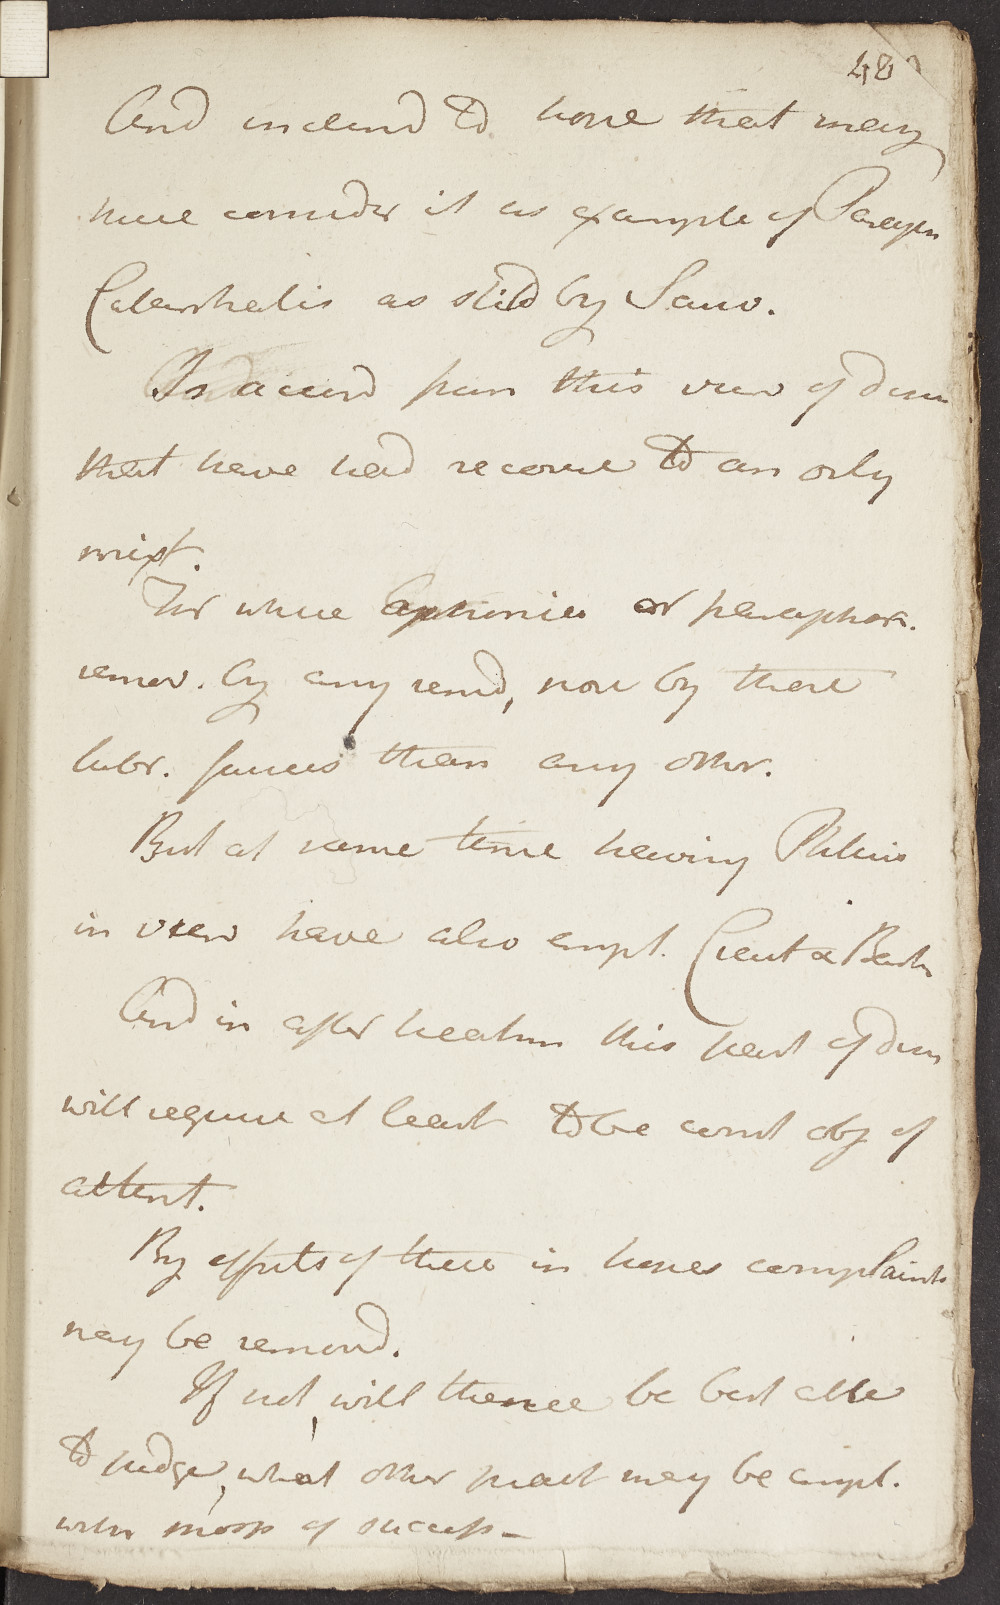 48
And inclind to hope that may
here consider it as example of Parap
Catarrhalis as stild by Sauv.
Indeed from this view of
that have had recourse to an oily
mixt.
For where Aphonia or paraphon.
remov. by any remd, non by these
lubr. fauces than any other.
But at same time having Phthisis
in view have also empl. Cicuta Bark
And in after treatm this part of
will require at least to be const obj of
attent.
By effects of these in hopes complaints
may be removd.
If not, will thence be best able
to judge, what other pract may be empl.
with most of success -